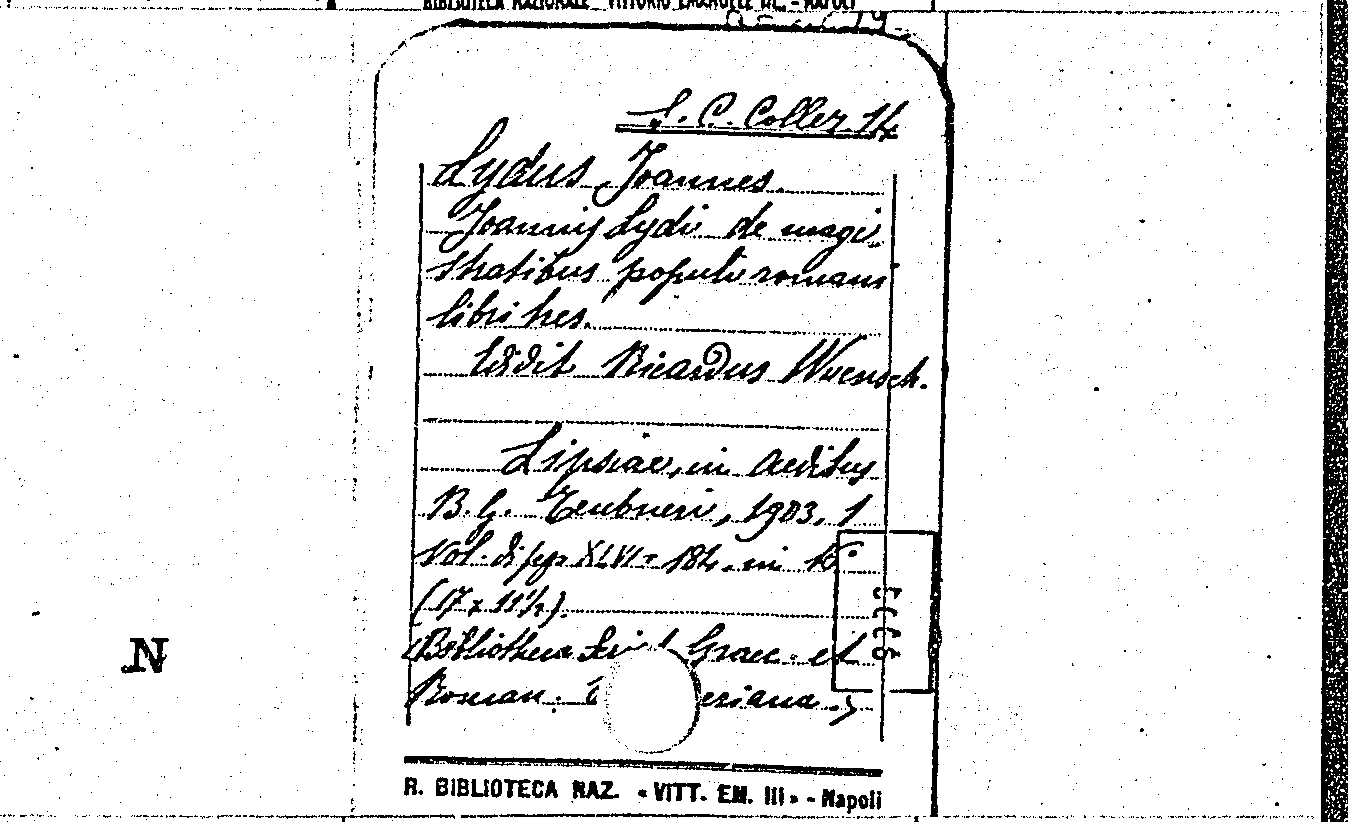 BIBLIOTECA NAZIONALE VITTORIO EMANUELE III. - NAPOLI
S. C. Collez. 14
Lydus Joannes.
Joannis Lydi de magi-
stratibus populi romani
libri tres.
Edidit Ricardus Wuensch.
Lipsiae, in aedibus
B. G. Teubneri, 1903. 1
Vol. di pp XLVI - 184. in 16°
(17 x 11½).
(Bibliotheca Graec. et
Roman.
N
R. BIBLIOTECA NAZ. « VITT. EM. III » - Napoli